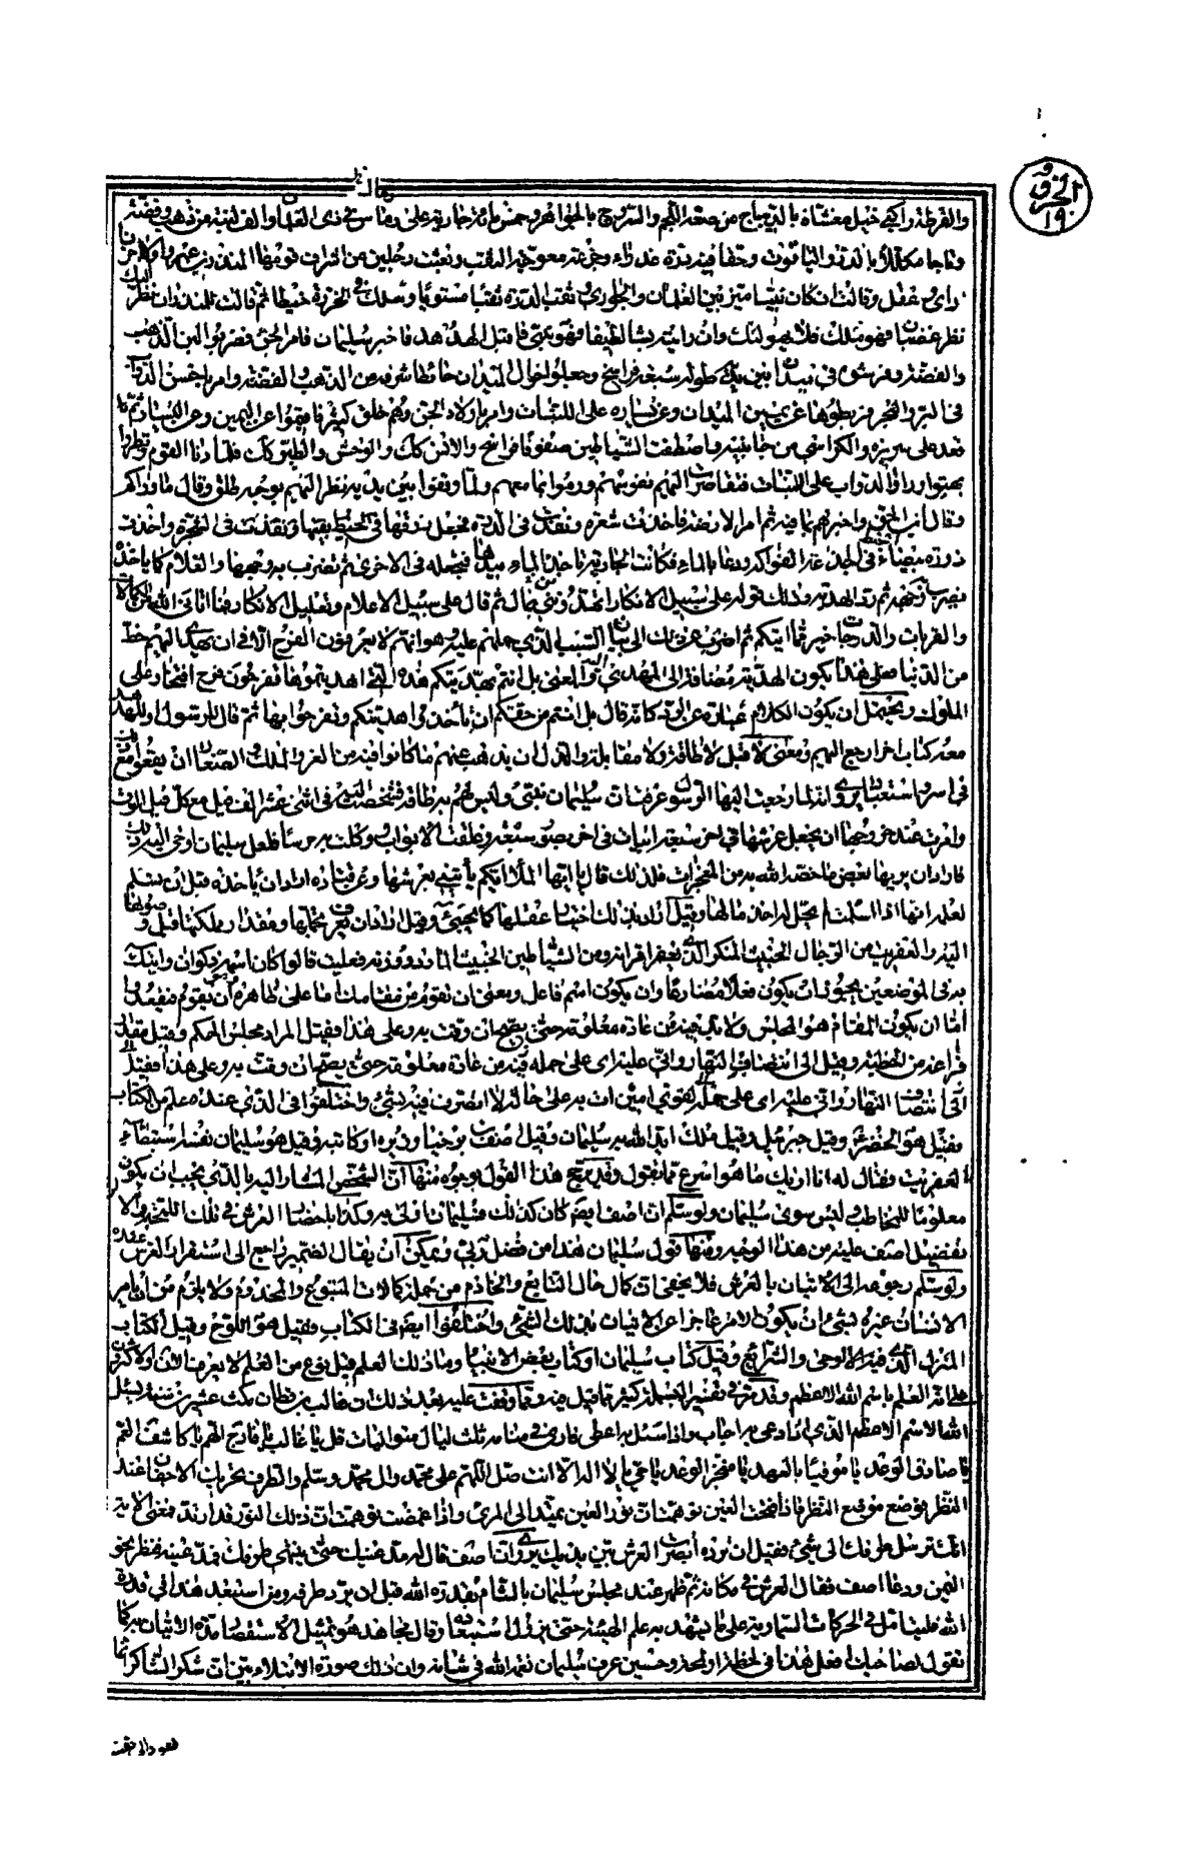 الجزو
١٩
والقرطة راكبي خيل مغشاة بالديباج من صعة اللجم والسروج بالجواهر وخمس مائة جارية على رماك في زي الغلمان والف لبنة من ذهب وفضة
وتاجا مكللا بالدر والياقوت وحقا فيه درة عذراء وجزعة معوجة الثقب وبعثت رجلين من اشراف قومها المنذر بن عمرو والاخر
ذا رأي وعقل وقالت ان كان نبيا ميز بين الغلمان والجواري وثقب الدرة ثقبا مستويا وسلك في الخرزة خيطا ثم قالت للمنذر ان نظر اليك
نظر غضبان فهو ملك فلا يهولنك وان رايته بشا لطيفا فهو نبي فاقبل الهدهد فاخبر سليمان فامر الجن فضربوا لبن الذهب
والفضة وفرشوه في ميدان بين يديه طوله سبعة فراسخ وجعلوا حول الميدان حائطا شرفه من الذهب والفضة وامر باحسن الدواب
في البر والبحر فربطوها عن يمين الميدان وعن يساره على اللبنات وامر باولاد الجن وهم خلق كثير فاقيموا عن اليمين وعن اليسار ثم
قعد على سريره والكراسي من جانبيه واصطفت الشياطين صفوفا فراسخ والانس كذلك والوحش والطير كذلك فلما دنا القوم ونظروا
بهتوا وراوا الدواب على اللبنات فتقاصرت اليهم نفوسهم ورموا بما معهم ولما وقفوا بين يديه نظر اليهم بوجه طلق وقال ما وراكم
وقال اين الحق واخبرهم بما فيه ثم امر الارضة فاخذت شعرة ونفذت في الدرة فجعل رزقها في الشجرة واخذت
دودة بيضاء الخيط بفيها ونفذت فيها فجعل رزقها في الفواكه ودعا بالماء فكانت الجارية تاخذ الماء بيدها فتجعله في الاخرى ثم تضرب به وجهها والغلام كما ياخذه
يضرب وجهه ثم رد الهدية وذلك قوله على سبيل الانكار اتمدونني بمال ثم قال على سبيل الاعلام وتعليل الانكار فما اتاني الله من الكمالات
والقربات والدرجات خير مما اتيكم ثم اضرب عن ذلك الى بيان السبب الذي حملهم عليه وهو انهم لا يعرفون الفرح الا في ان يهدى اليهم حظ
من الدنيا فعلى هذا يكون الهدية مضافة الى المهدى اليه او المعنى بل انتم بهديتكم هذه التي اهديتموها تفرحون فرح افتخار على
الملوك ويحتمل ان يكون الكلام عبارة عن الرد كانه قال بل انتم من حقكم ان تاخذوا هديتكم وتفرحوا بها ثم قال للرسول او للهدهد
معه كتابا اخر ارجع اليهم ومعنى لا قبل لا طاقة ولا مقابلة والذل ان يذهب عنهم ما كانوا فيه من العز والملك والصغار ان يقعوا مع ذلك
في اسر واستعباد يروى انه لما رجعت اليها الرسول عرفت ان سليمان نبي وليس لهم به طاقة فشخصت اليه في اثنى عشر الف قيل مع كل قيل الوف
وامرت عند خروجها ان يجعل عرشها في اخر سبعة ابيات في اخر قصور سبعة وغلقت الابواب ووكلت به حرسا فلعل سليمان اوحي اليه ذلك
فاراد ان يريها بعض ما خصه الله به من المعجزات فلذلك قال يا ايها الملأ ايكم يأتيني بعرشها وعن قتادة اراد ان ياخذه قبل ان يسلم
لعلمه انها اذا اسلمت لم يحل له اخذ مالها وقيل اراد بذلك اختبار عقلها كما يجيئ وقيل اراد ان يعرف تجملها ومقدار مملكتها قبل وصولها
اليه والعفريت من الرجال الخبيث المنكر الذي يعفر اقرانه ومن الشياطين الخبيث المارد ووزنه فعليت قالوا كان اسمه ذكوان واتيك
به في الموضعين يجوز ان يكون فعلا مضارعا وان يكون اسم فاعل ومعنى ان تقوم من مقامك اما على ظاهره وهو ان يقوم فيقعد
اما ان يكون المقام هو المجلس ولا بد فيه من عادة معلومة حتى يصح ان يوقت به وعلى هذا فقيل المراد مجلس الحكم وقيل مقدار
فراغه من الخطبة وقيل الى انتصاف النهار واني عليه اي على حمله
اتي على حمله لقوي امين ات به على حاله لا اتصرف فيه بشيء واختلفوا في الذي عنده علم من الكتاب
فقيل هو الخضر وقيل جبرئيل وقيل ملك ايد الله به سليمان وقيل اصف بن برخيا وزيره او كاتبه وقيل هو سليمان نفسه استبطاء
العفريت فقال له انا اريك ما هو اسرع مما تقول وقد يرجح هذا القول بوجوه منها ان الشخص المشار اليه بالذي يجب ان يكون
معلوما للمخاطب وليس سوى سليمان ولو سلم ان اصف ايضا كان كذلك فسليمان اولى به وكذا باحضار العرش في تلك اللحظة والا
تفضيل اصف عليه من هذا الوجه ومنها قول سليمان هذا من فضل ربي ويمكن ان يقال الضمير راجع الى استقرار العرش عنده
ولو سلم رجوعه الى الاتيان بالعرش فلا يخفى ان كمال حال التابع والخادم من جملة كمالات المتبوع والمخدوم ولا يلزم من ان يامر
الانسان غيره بشيء ان يكون الامر عاجزا عن الاتيان بذلك الشيء واختلفوا ايضا في الكتاب فقيل هو اللوح وقيل الكتاب
المنزل الذي فيه الوحي والشرائع وقيل كتاب سليمان او كتاب بعض الانبياء وما ذلك العلم قيل نوع من العلم لا يعرف الان والاكثرون
على انه العلم باسم الله الاعظم وقد مر في تفسير البسملة كثير مما قيل فيه ومما وقفت عليه بعد ذلك ان غالب بن قطان مكث عشرين سنة يسئل
الله الاسم الاعظم الذي اذا دعي به اجاب واذا سئل به اعطى فاري في منامه ثلث ليال متواليات قل يا غالب يا فارج الهم يا كاشف الغم
يا صادق الوعد يا موفيا بالعهد يا منجز الوعد يا حي يا لا اله الا انت صل اللهم على محمد وال محمد وسلم والطرف تحريك الاجفان عند
النظر يوضع موضع النظر فاذا فتحت العين توهمت ان نور العين يمتد الى المرئي واذا غمضت توهمت ان ذلك النور قد ارتد فمعنى الاية
انك ترسل طرفك الى شيء فقبل ان ترده ابصرت العرش بين يديك يروى ان اصف قال له مد عينيك حتى ينتهي طرفك فمد عينيه فنظر نحو
اليمن ودعا اصف فغار العرش في مكانه ثم ظهر عند مجلس سليمان بالشام بقدرة الله قبل ان يرد طرفه ومن استبعد هذا في قدرة
الله فليتامل في الحركات السماوية على ما يشهد به علم الهيئة حتى يزول استبعاده وقال مجاهد هو تمثيل لاستقصار مدة الاتيان به كما
تقول لصاحبك افعل هذا في لحظة او لمحة وحين عرف سليمان نعمة الله في شانه وان ذلك صورة الابتلاء بين ان شكر الشاكر انما